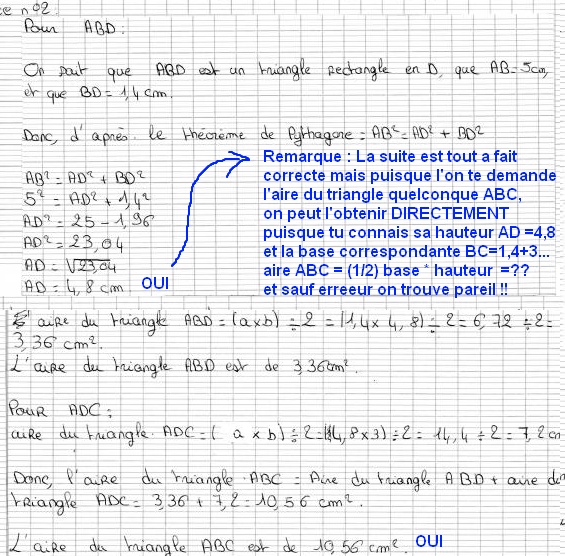 ce n°2
Pour ABD :
On sait que ABD est un triangle rectangle en D, que AB=5cm,
et que BD = 1,4 cm.
Donc, d'après le théorème de Pythagore = AB² = AD² + BD²
AB² = AD² + BD²
5² = AD² + 1,4²
AD² = 25 - 1,96
AD² = 23,04
AD = √23,04
AD = 4,8 cm. OUI
Remarque : La suite est tout a fait
correcte mais puisque l'on te demande
l'aire du triangle quelconque ABC,
on peut l'obtenir DIRECTEMENT
puisque tu connais sa hauteur AD =4,8
et la base correspondante BC=1,4+3...
aire ABC = (1/2) base * hauteur =??
et sauf erreeur on trouve pareil !!
aire du triangle ABD = (a x b) ÷ 2 = (1,4 x 4,8) ÷ 2 = 6,72 ÷ 2 =
3,36 cm².
L'aire du triangle ABD est de 3,36cm².
Pour ADC ;
aire du triangle ADC = ( a x b) ÷ 2 = (4,8 x 3) ÷ 2 = 14,4 ÷ 2 = 7,2 cm
Donc, l'aire du triangle ABC = Aire du triangle ABD + aire du
triangle ADC = 3,36 + 7,2 = 10,56 cm².
L'aire du triangle ABC est de 10,56 cm². OUI